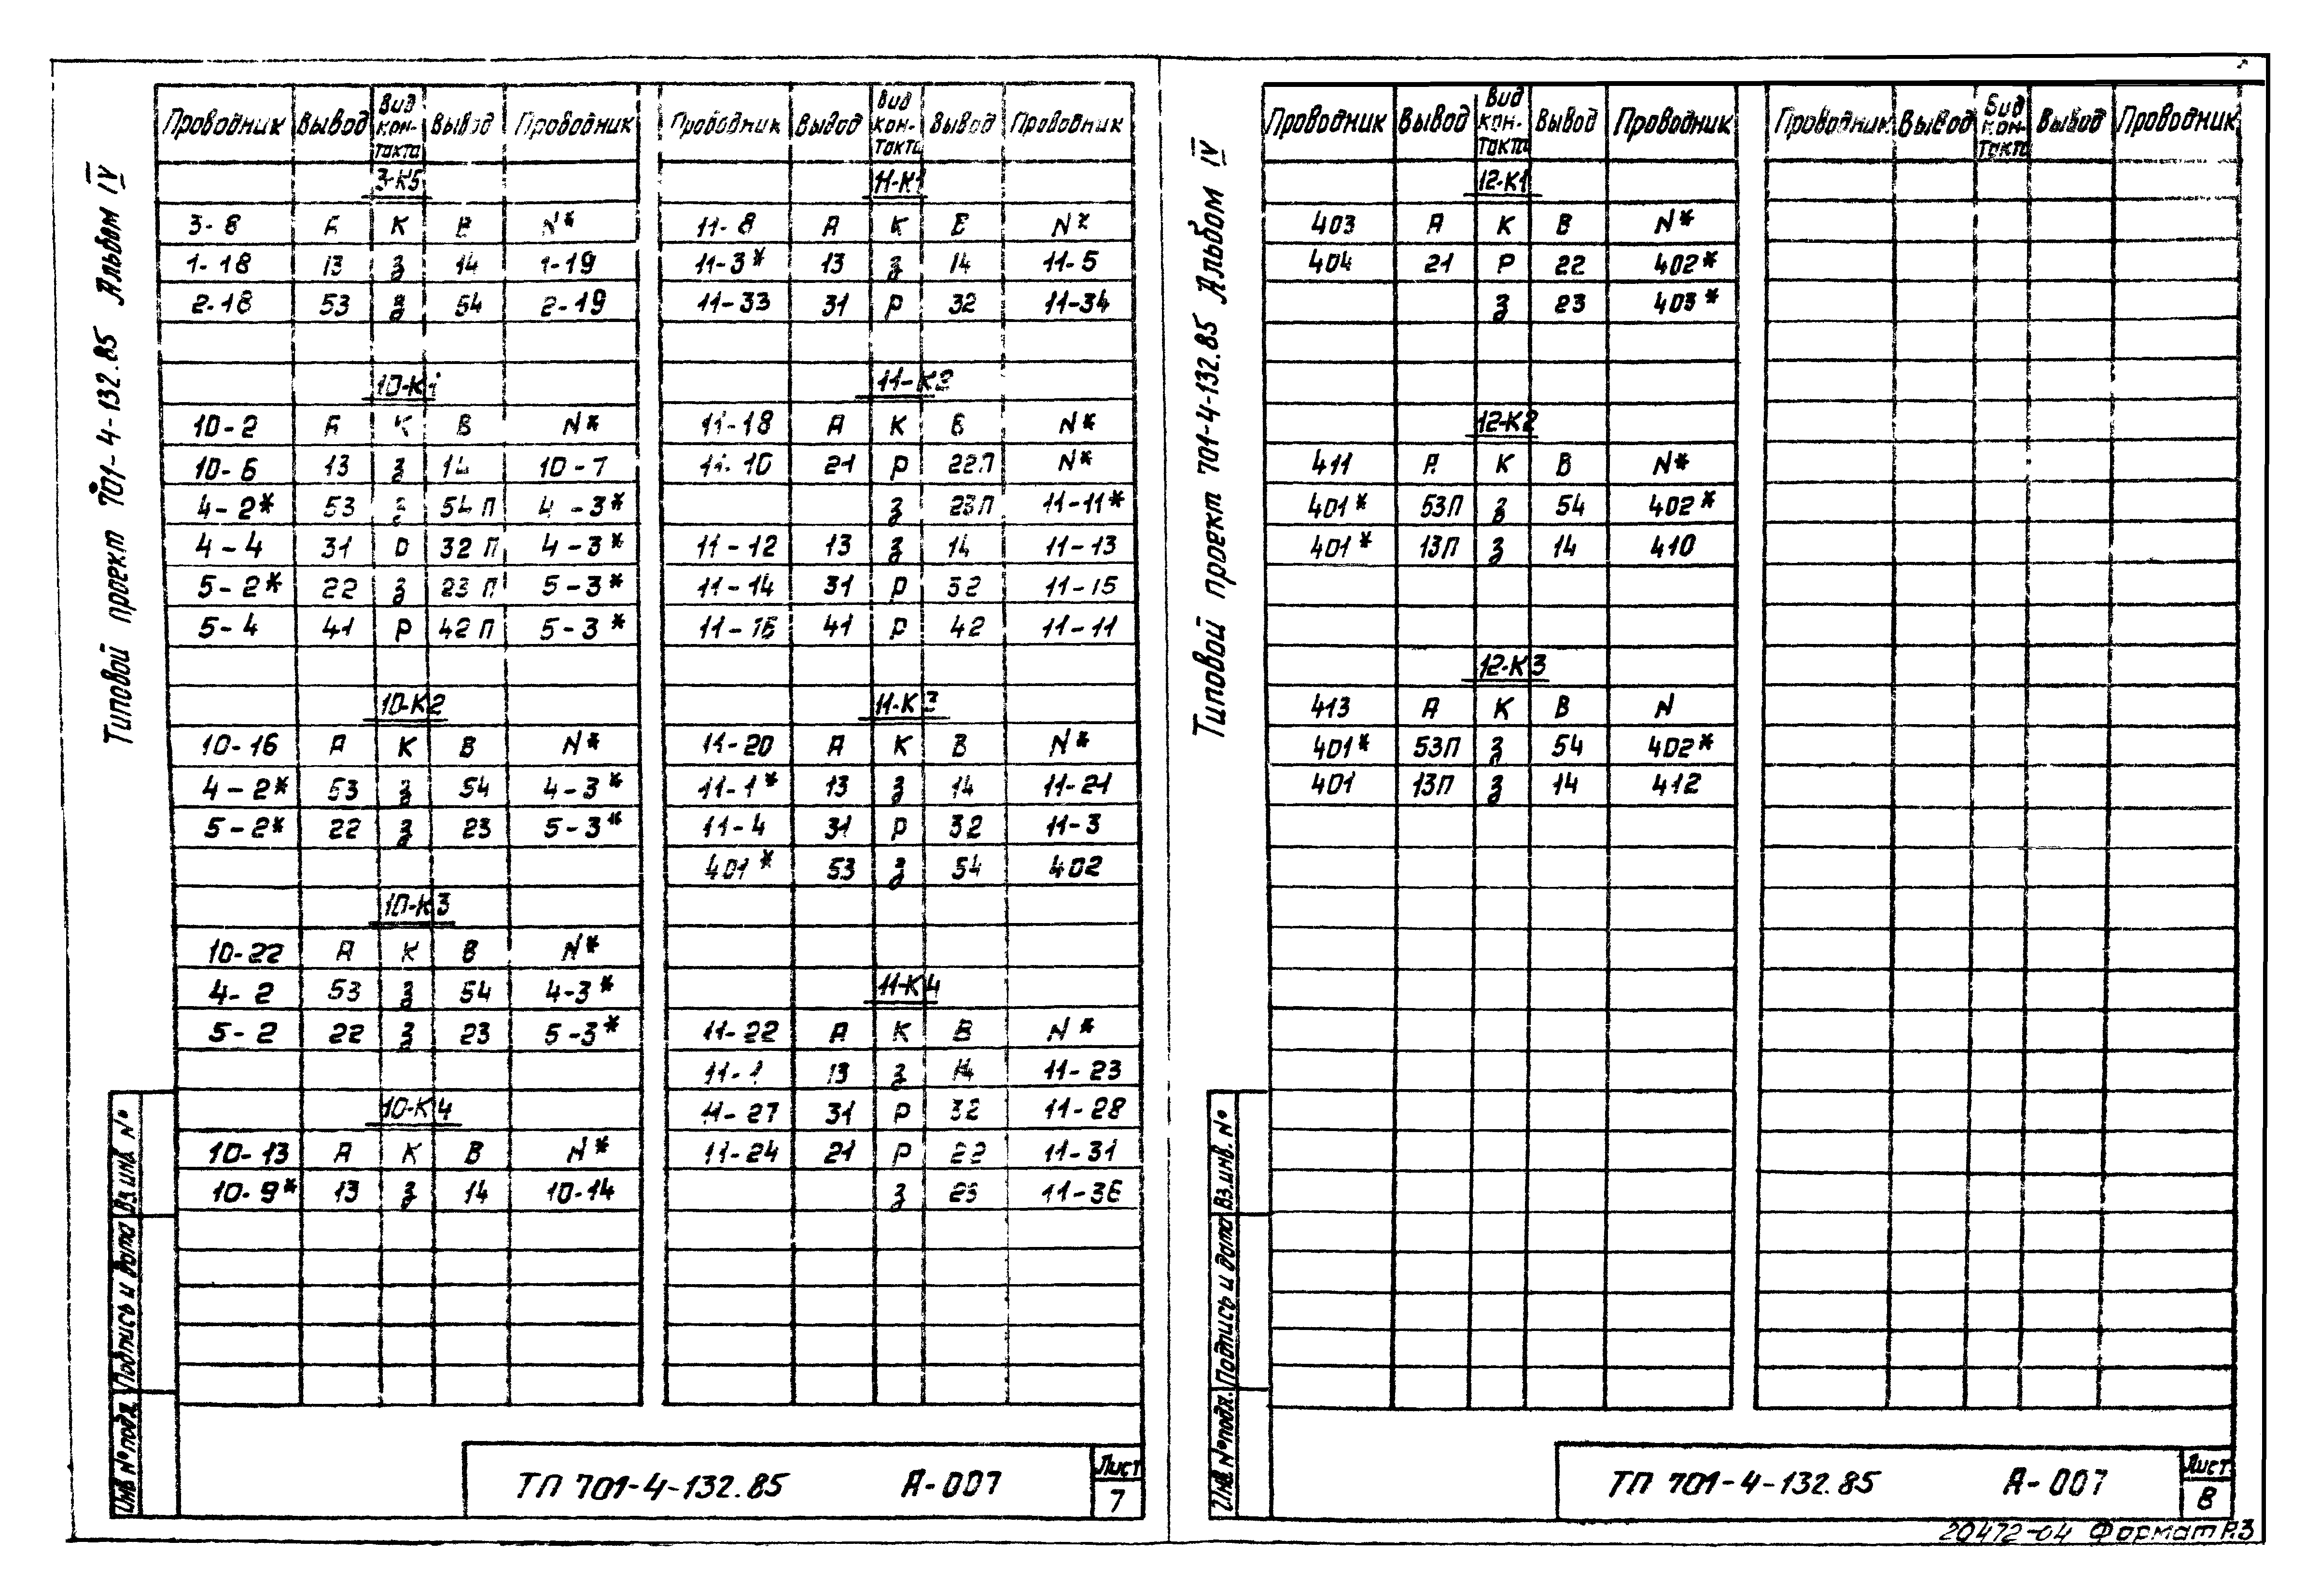 Типовой проект 701-4-132.85 Альбом IV
Проводник Вывод Вид кон-такта Вывод Проводник
3-К5
3-8 А К В N*
1-18 13 З 14 1-19
2-18 53 З 54 2-19
10-К1
10-2 А К В N*
10-6 13 З 14 10-7
4-2* 53 З 54П 4-3*
4-4 31 Р 32П 4-3*
5-2* 22 З 23П 5-3*
5-4 41 Р 42П 5-3*
10-К2
10-16 А К В N*
4-2* 53 З 54 4-3*
5-2* 22 З 23 5-3*
10-К3
10-22 А К В N*
4-2 53 З 54 4-3*
5-2 22 З 23 5-3*
10-К4
10-13 А К В N*
10-9* 13 З 14 10-14
Проводник Вывод Вид кон-такта Вывод Проводник
11-К1
11-8 А К В N*
11-3* 13 З 14 11-5
11-33 31 Р 32 11-34
11-К2
11-18 А К В N*
11-10 21 Р 22П N*
З 23П 11-11*
11-12 13 З 14 11-13
11-14 31 Р 32 11-15
11-16 41 Р 42 11-11
11-К3
11-20 А К В N*
11-1* 13 З 14 11-21
11-4 31 Р 32 11-3
401* 53 З 54 402
11-К4
11-22 А К В N*
11-1 13 З 14 11-23
11-27 31 Р 32 11-28
11-24 21 Р 22 11-31
З 23 11-36
Инв №подл. Подпись и дата Вз.инв. №
ТП 701-4-132.85 А-007
Лист
7
Типовой проект 701-4-132.85 Альбом IV
Проводник Вывод Вид кон-такта Вывод Проводник
12-К1
403 А К В N*
404 21 Р 22 402*
З 23 403*
12-К2
411 А К В N*
401* 53П З 54 402*
401* 13П З 14 410
12-К3
413 А К В N
401* 53П З 54 402*
401 13П З 14 412
Проводник Вывод Вид кон-такта Вывод Проводник
Инв. №подл. Подпись и дата Вз.инв. №
ТП 701-4-132.85 А-007
Лист
8
20472-04 Формат А3